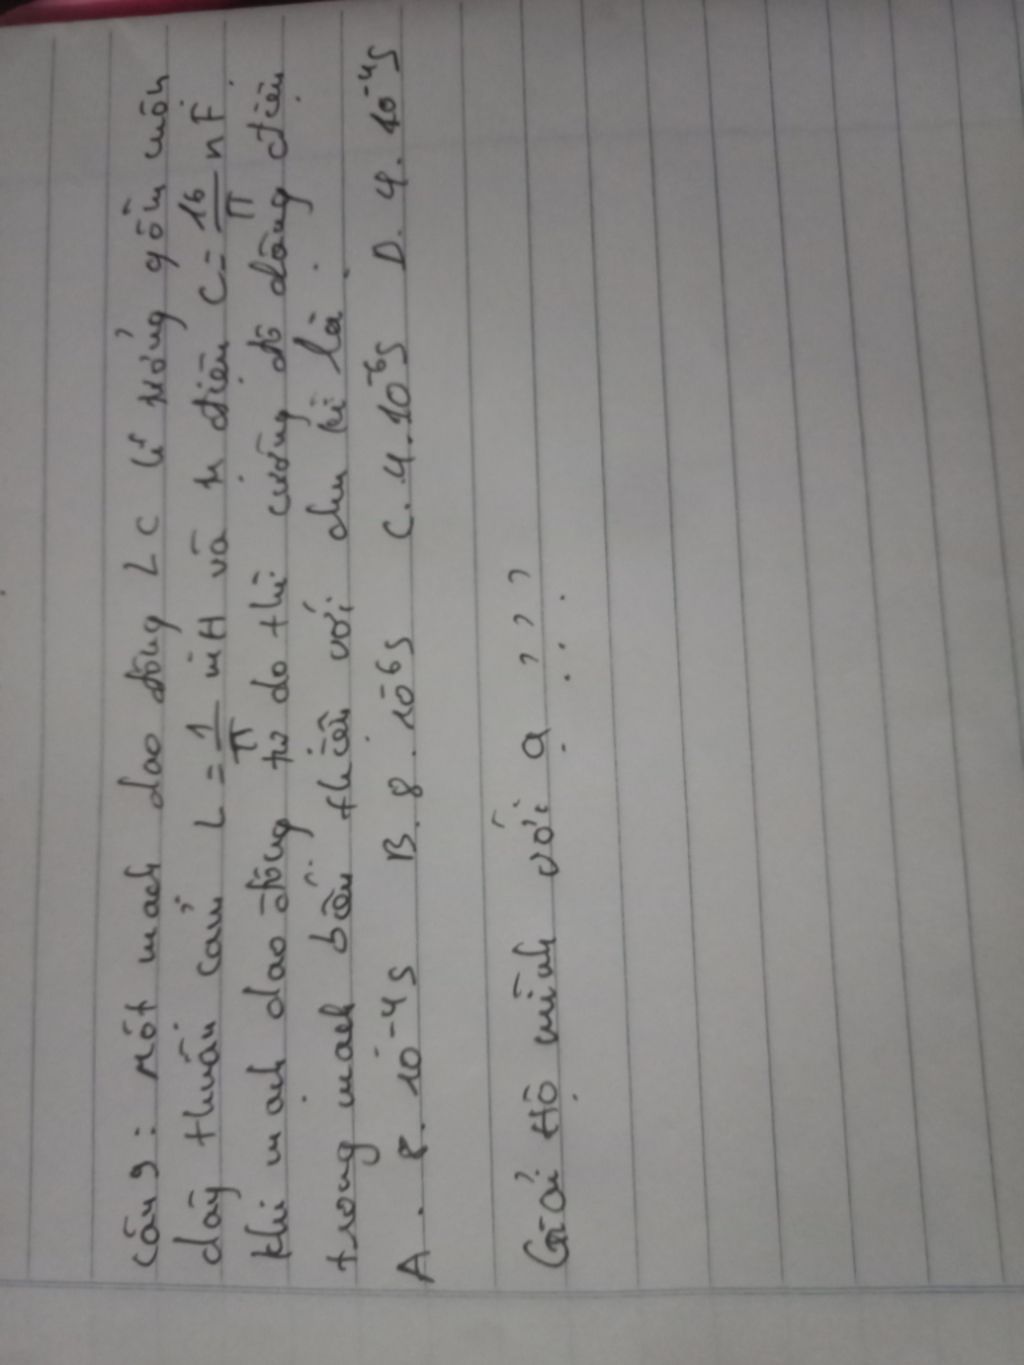 Câu 9: Một mạch dao động LC lí tưởng gồm cuộn
dây thuần cảm L = 1/π mH và tụ điện C = 16/π nF.
Khi mạch dao động tự do thì cường độ dòng điện
trong mạch biến thiên với chu kì là.
A. 8.10⁻⁴s B. 8.10⁻⁶s C. 4.10⁻⁶s D. 4.10⁻⁴s
Giải hộ mình với ạ ???